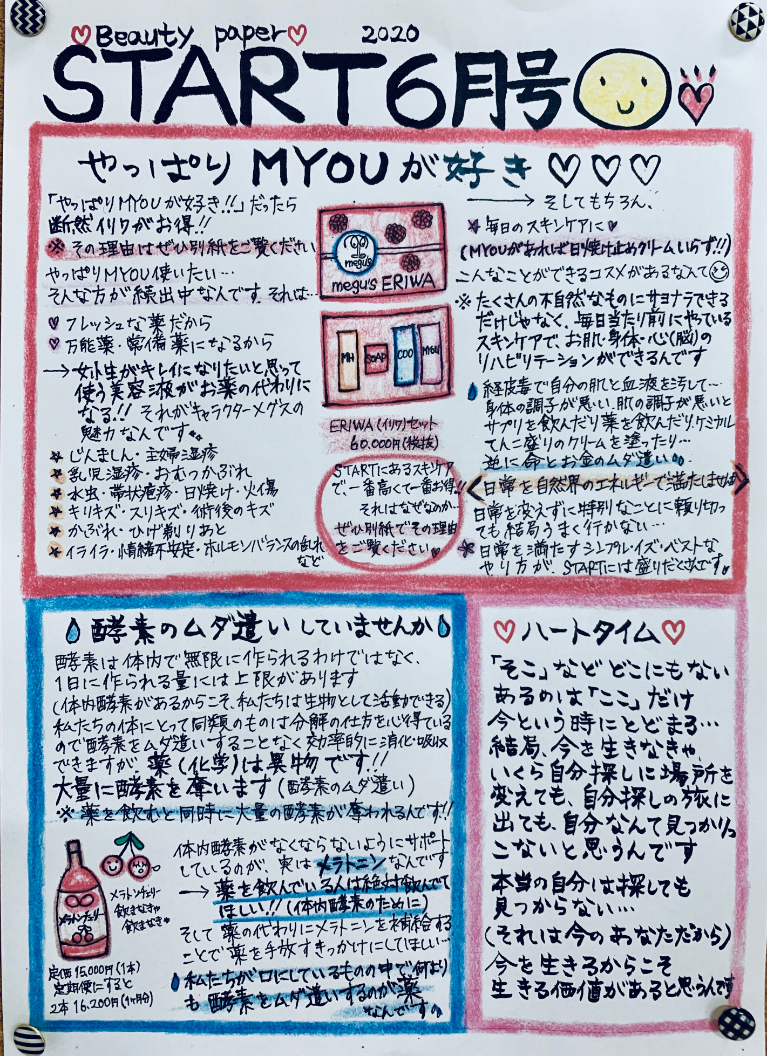 ♡Beauty paper♡ 2020
START6月号
やっぱり MYOUが好き♡♡♡
「やっぱりMYOUが好き!!」だったら
断然イリワがお得!!
※ その理由はぜひ別紙をご覧ください
やっぱりMYOU使いたい…
そんな方が続出中なんです。それは…
♡ フレッシュな薬だから
♡ 万能薬・常備薬になるから
→女性がキレイになりたいと思って
使う美容液がお薬の代わりに
なる!! それがキャラクターメグスの
魅力なんです
★ じんましん・主婦湿疹
★ 乳児湿疹・おむつかぶれ
★ 水虫・帯状疱疹・日焼け・火傷
★ キリキズ・スリキズ・術後のキズ
★ かぶれ・ひげ剃りあと
★ イライラ・情緒不安定・ホルモンバランスの乱れ
など
megu's
megu's ERIWA
MH
SOAP
COO
MYOU
ERIWA(イリワ)セット
60.000円(税抜)
STARTにあるスキンケア
で、一番高くて一番お得!!
それはなぜなのか…
ぜひ別紙でその理由
をご覧ください♥
→ そしてもちろん、
★ 毎日のスキンケアに♥
(MYOUがあれば日焼け止めクリームいらず!!)
こんなことができるコスメがあるなんて
※ たくさんの不自然なものにサヨナラできる
だけじゃなく、毎日当たり前にやっている
スキンケアで、お肌・身体・心(脳)の
リハビリテーションができるんです
経皮毒で自分の肌と血液を汚して…
身体の調子が悪い、肌の調子が悪いと
サプリを飲んだり薬を飲んだりケミカル
てんこ盛りのクリームを塗ったり…
逆に命とお金のムダ遣い
<日常を自然界のエネルギーで満たしませんか>
日常を変えずに特別なことに頼り切っ
ても結局うまく行かない…
★ 日常を満たすシンプル・イズ・ベストな
やり方が、STARTには盛りだくさんです。
酵素のムダ遣いしていませんか
酵素は体内で無限に作られるわけではなく、
1日に作られる量には上限があります
(体内酵素があるからこそ、私たちは生物として活動できる)
私たちの体にとって同類のものは分解の仕方を心得ている
ので酵素をムダ遣いすることなく効率的に消化・吸収
できますが、薬(化学)は異物です!!
大量に酵素を奪います(酵素のムダ遣い)
※ 薬を飲むと同時に大量の酵素が奪われるんです!!
体内酵素がなくならないようにサポート
しているのが、実はメラトニンなんです
→ 薬を飲んでいる人は絶対飲んで
ほしい!!(体内酵素のために)
そして薬の代わりにメラトニンを補給する
ことで薬を手放すきっかけにしてほしい…
私たちが口にしているものの中で何より
も酵素をムダ遣いするのが薬
なんです
メラトンチェリー
メラトンチェリー
飲まなきゃ
飲まなきゃ
定価15,000円(1本)
定期便にすると
2本 16,200円(1ヶ月分)
♡ハートタイム♡
「そこ」など どこにもない
あるのは「ここ」だけ
今という時にとどまる…
結局、今を生きなきゃ
いくら自分探しに場所を
変えても、自分探しの旅に
出ても、自分なんて見つかりっ
こないと思うんです
本当の自分は探しても
見つからない…
(それは今のあなただから)
今を生きるからこそ
生きる価値があると思うんです